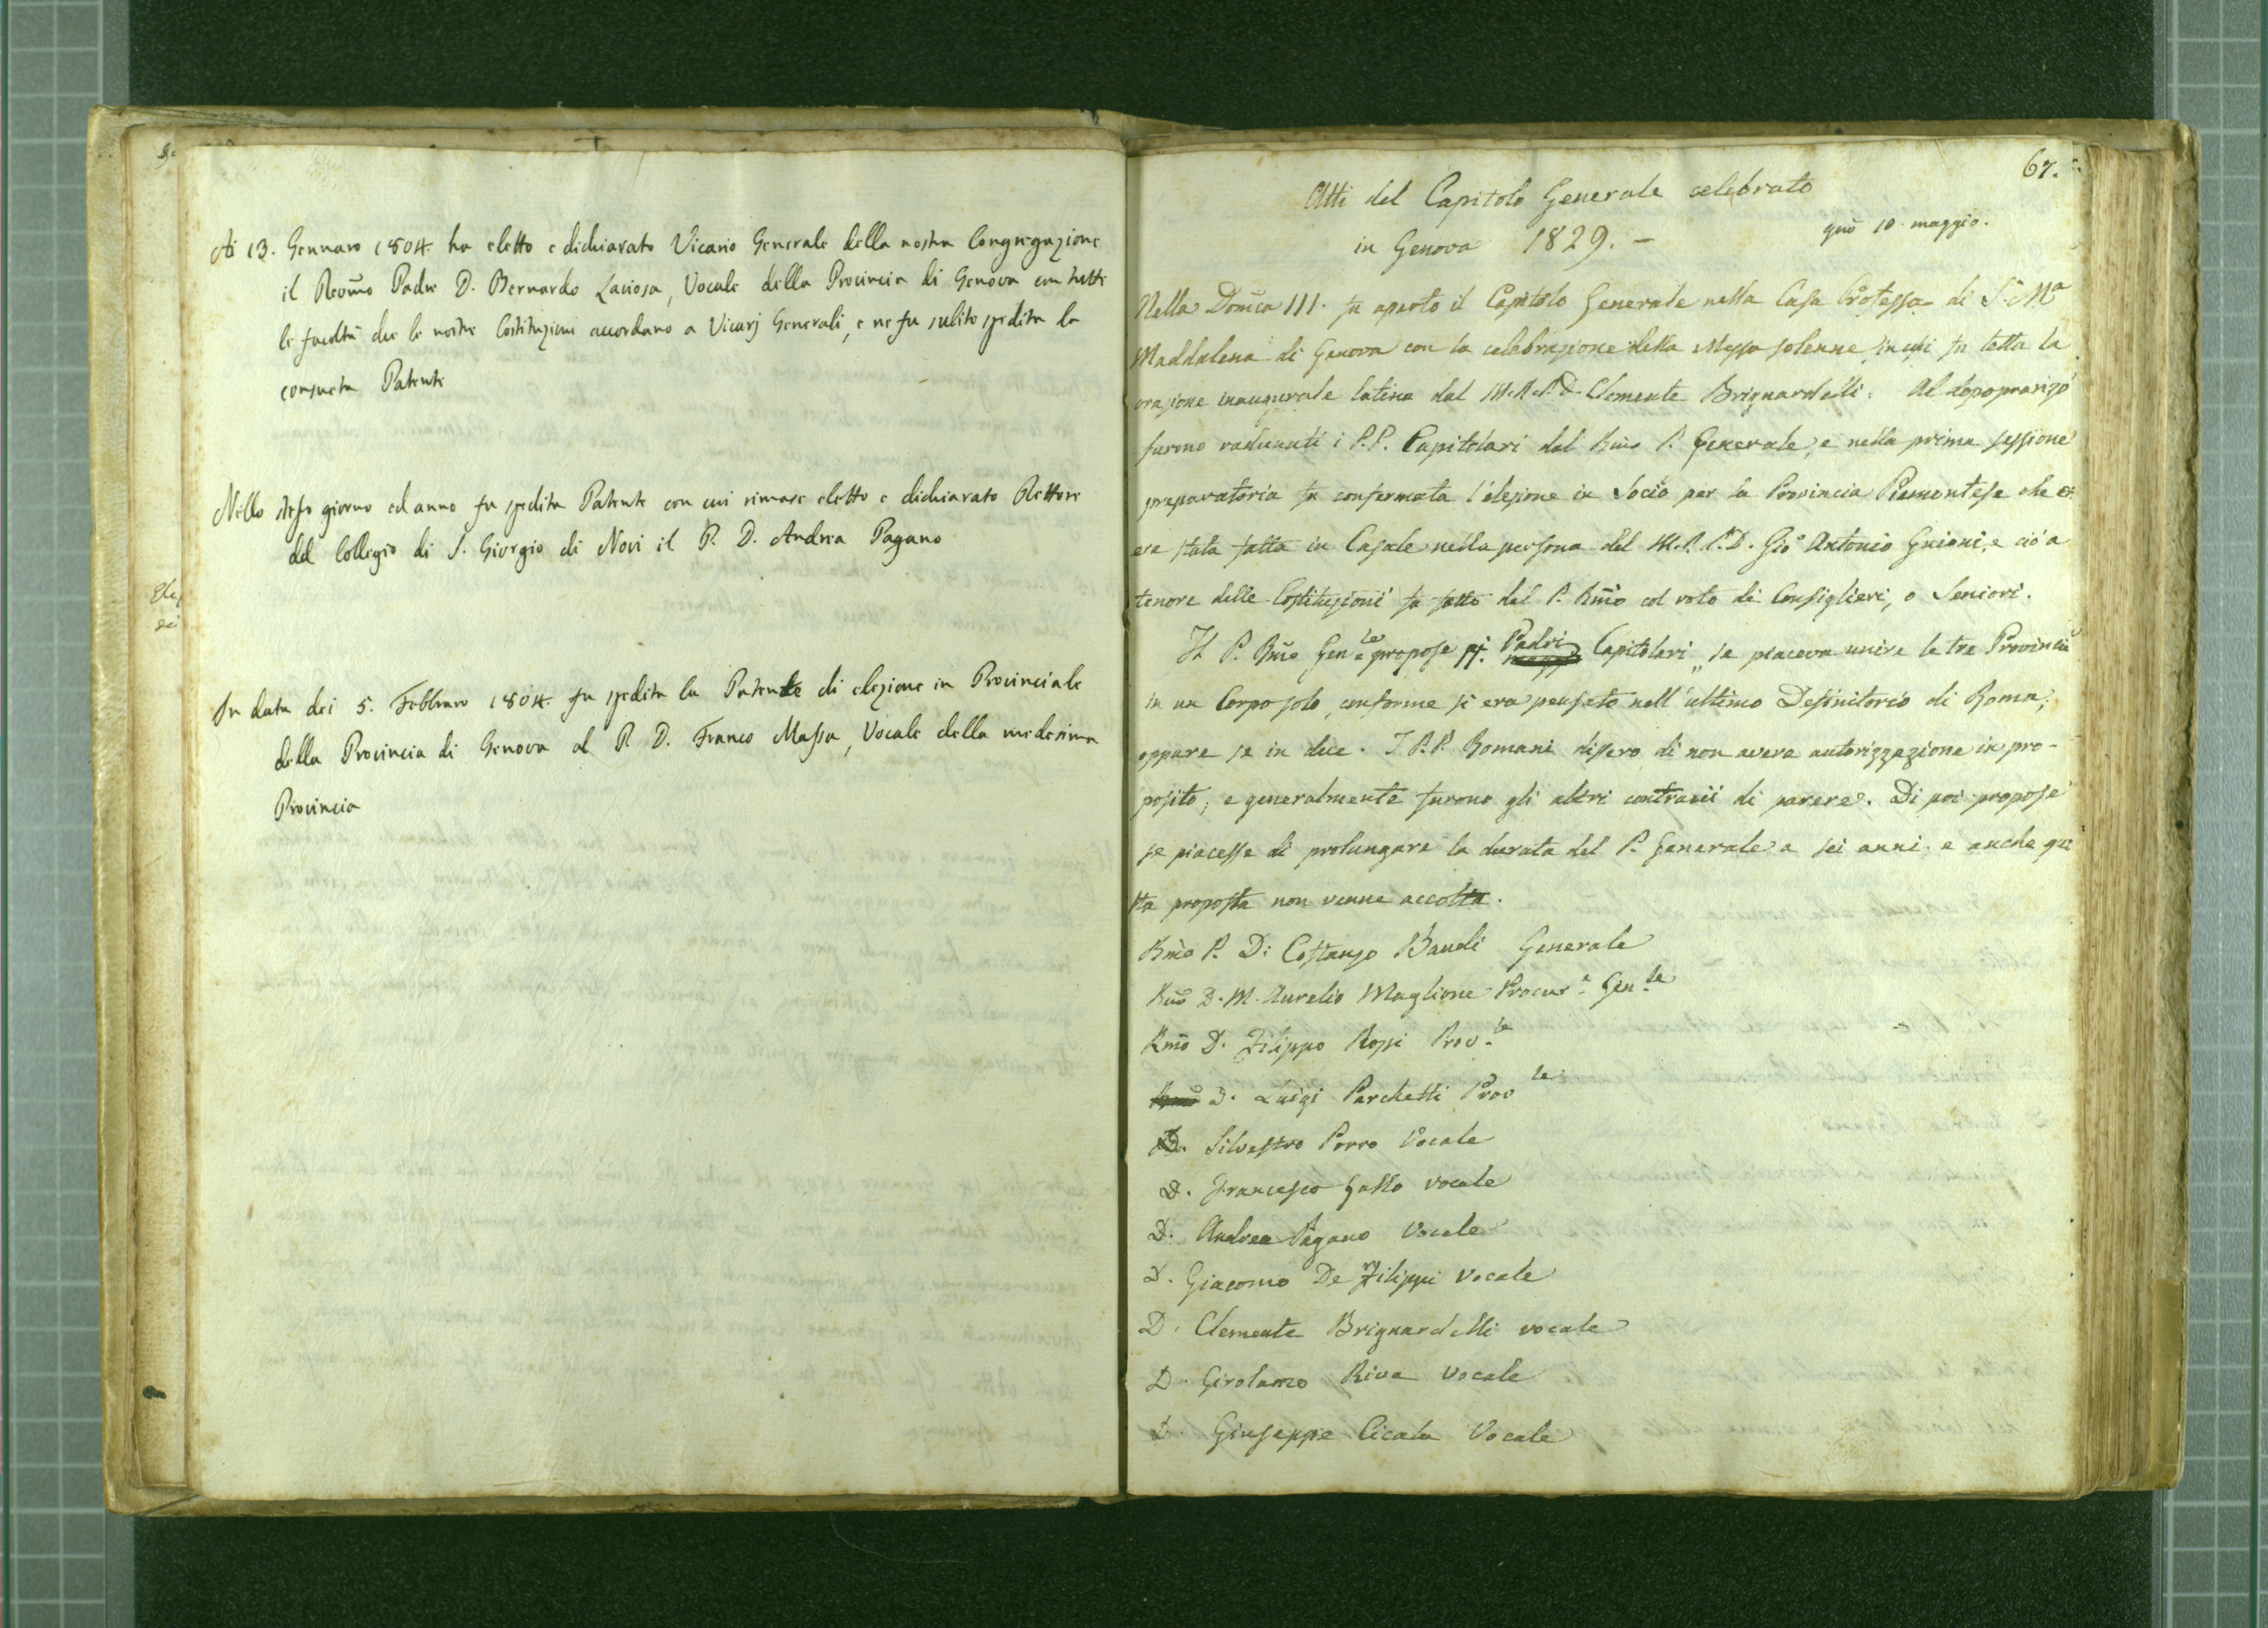 Ai 13. Gennaro 1804. ha eletto e dichiarato Vicario Generale della nostra Congregazione
il Revm̃o Padre D. Bernardo Laviosa, Vocale della Provincia di Genova con tutte
le facoltà che le nostre Costituzioni accordano a Vicarj Generali, e ne fu subito spedita la
consueta Patente
Nello stesso giorno ed anno fu spedita Patente con cui rimase eletto e dichiarato Rettore
del Collegio di S. Giorgio di Novi il P. D. Andrea Pagano
In data dei 5. Febbraro 1804. fu spedita la Patente di elezione in Provinciale
della Provincia di Genova al P. D. Franco Massa, Vocale della medesima
Provincia
67.
Atti del Capitolo Generale celebrato
in Genova 1829. –
10. maggio.
Nella Domca III. fu aperto il Capitolo Generale nella Casa Professa di S. Ma
Maddalena di Genova con la celebrazione della Messa solenne, in cui fu letta la
orazione inaugurale latina dal M.R.P.D. Clemente Brignardelli. Al dopopranzo
furono radunati i P.P. Capitolari dal Rm̃o P. Generale, e nella prima sessione
preparatoria fu confermata l'elezione in Socio per la Provincia Piemontese che
era stata fatta in Casale nella persona del M.R.P.D. Gio Antonio Guioni, e ciò a
tenore delle Costituzioni fu fatto dal P. Rm̃o col voto di Consiglieri, o Seniori.
Il P. Rm̃o Genle propose Padri Capitolari „ se piaceva unire le tre Provincie
in un Corpo solo, conforme si era pensato nell'ultimo Definitorio di Roma,
oppure se in due. I P.P. Romani dissero di non avere autorizzazione in pro-
posito, e generalmente furono gli altri contrarii di parere. Di poi propose
se piacesse di prolungare la durata del P. Generale a sei anni, e anche que
sta proposta non venne accolta.
Rm̃o P. D. Costanzo Baudi Generale
Rm̃o D. M. Aurelio Maglione Procure Genle
Rm̃o D. Filippo Rossi Prov.le
D. Luigi Parchetti Prov le
D. Silvestro Porro Vocale
D. Francesco Gallo vocale
D. Andrea Pagano Vocale
D. Giacomo De Filippi Vocale
D. Clemente Brignardelli vocale
D. Girolamo Riva Vocale
D. Giuseppe Cicala Vocale